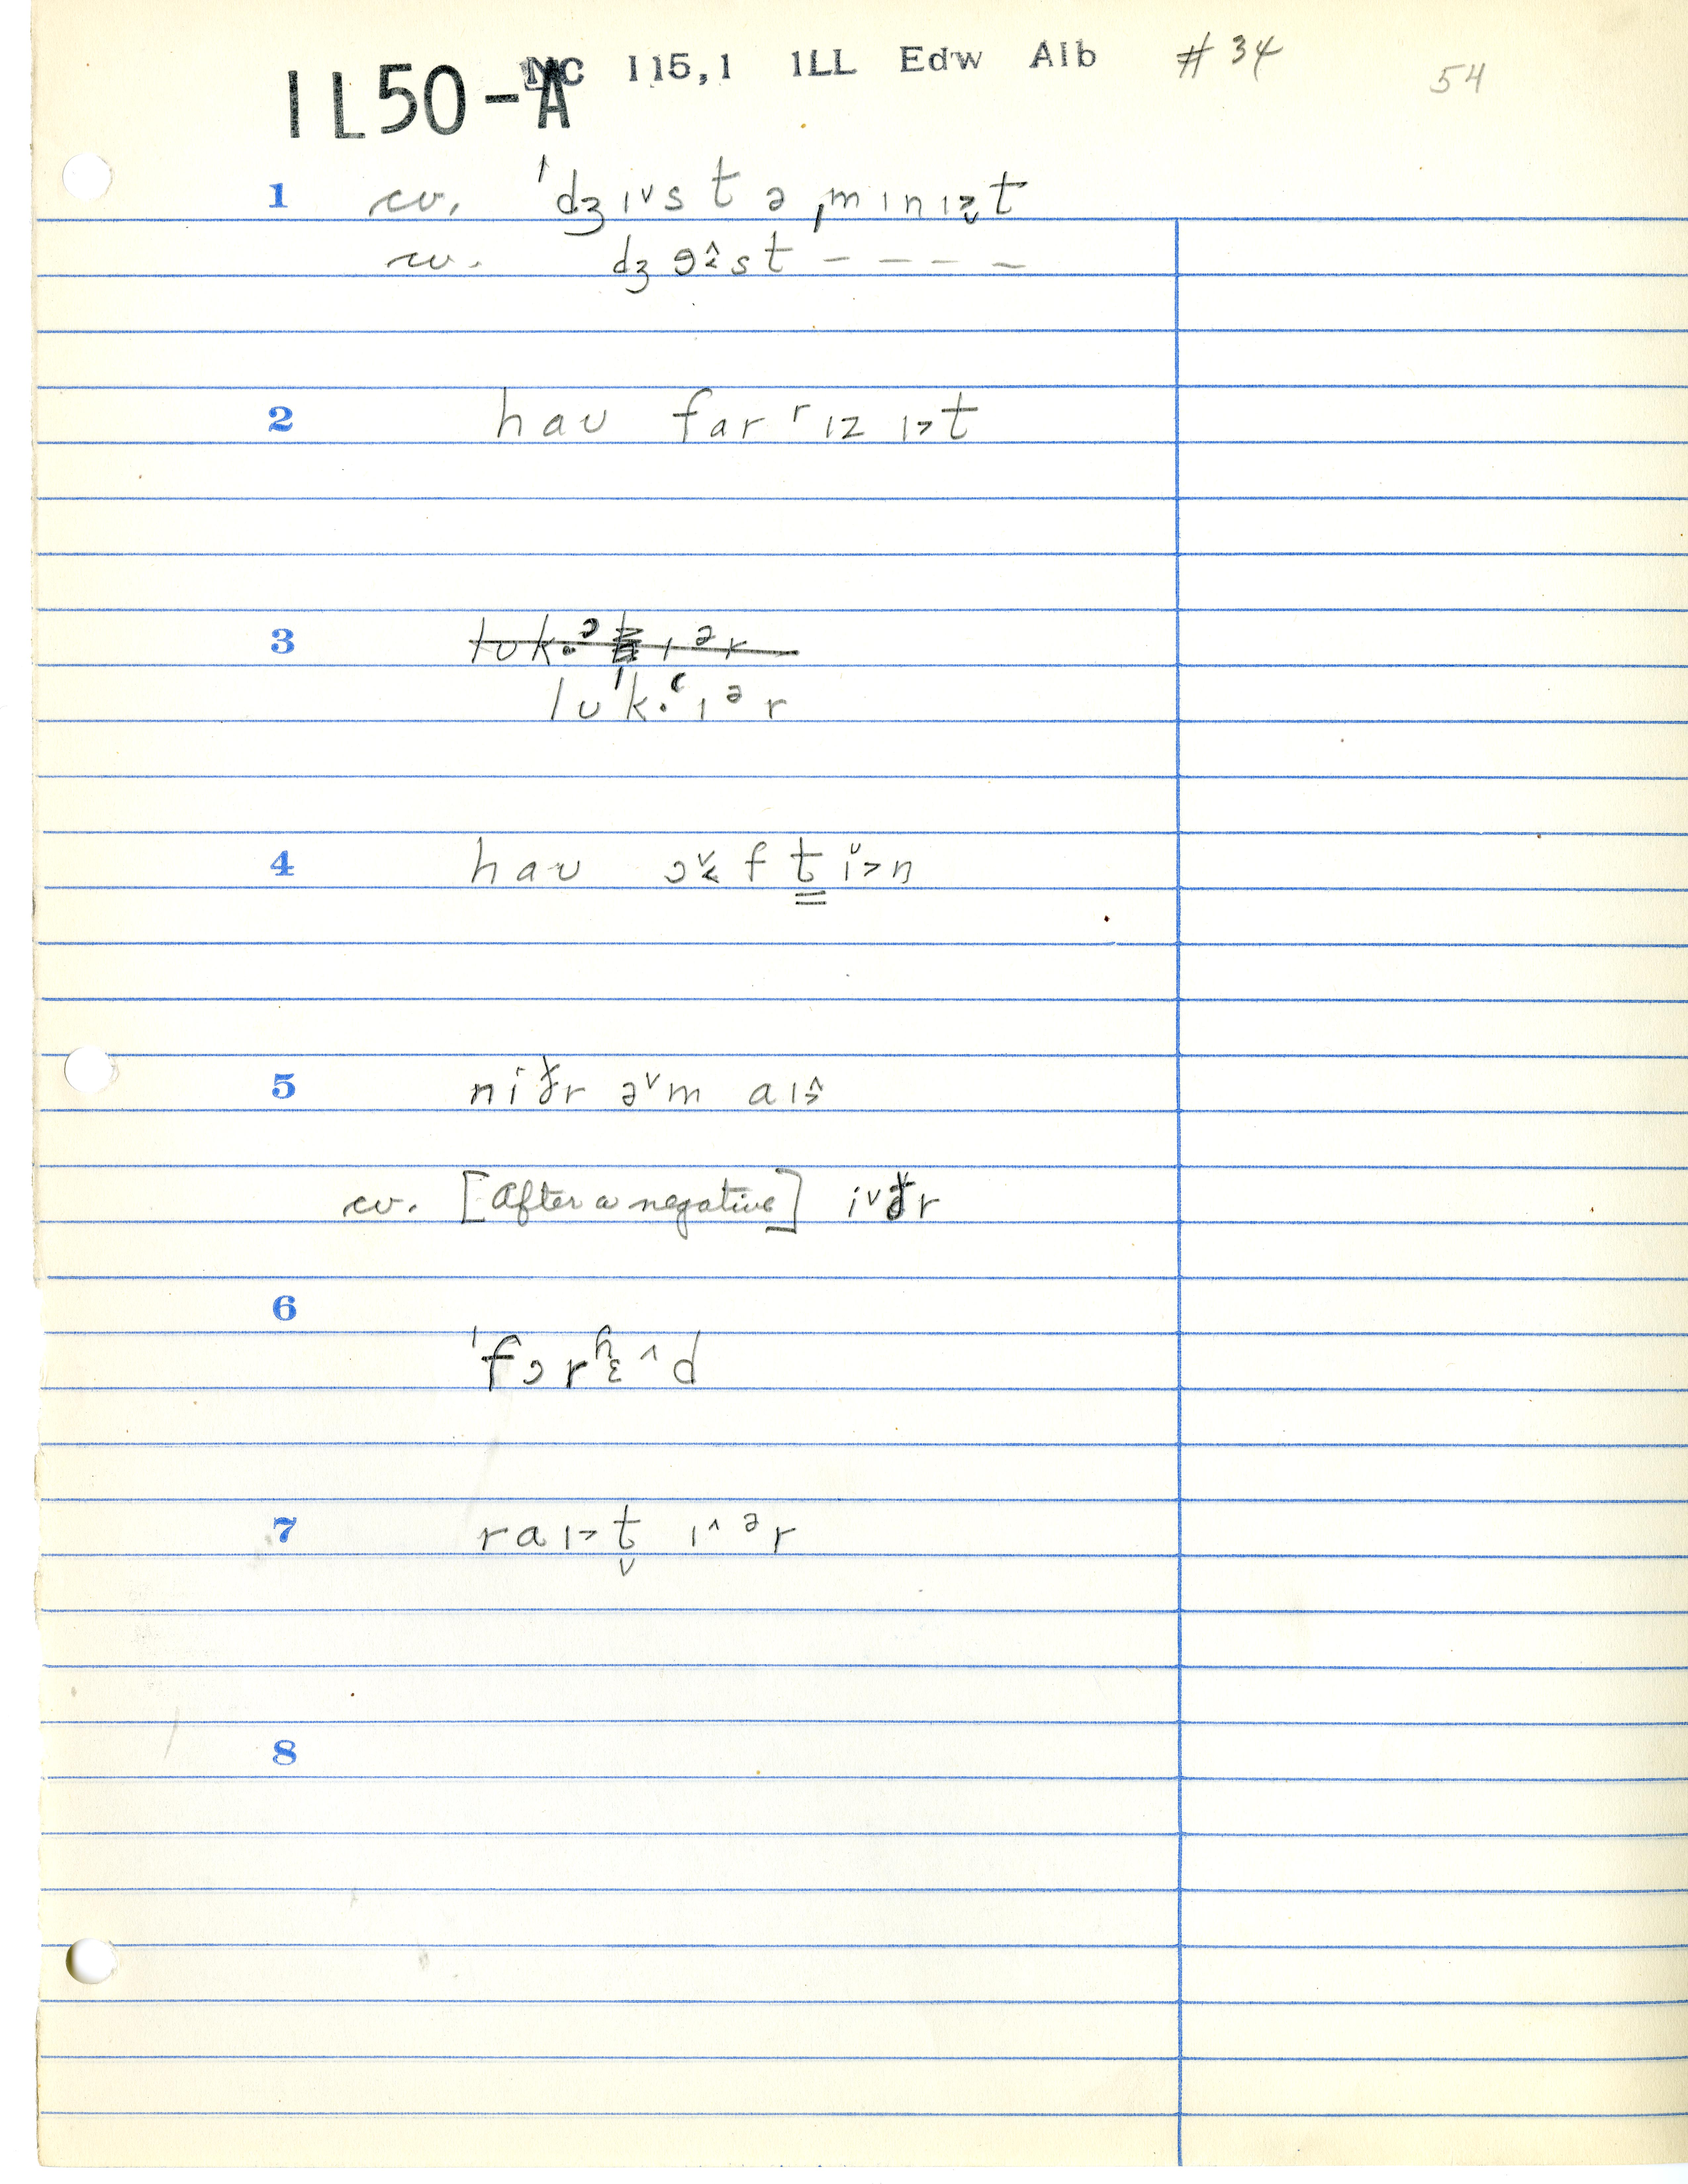 IL50-A NC 115,1 ILL Edw Alb #34 54
1 cv. ˈdʒɪ˅st ə ˌmɪnɪ˃˅t
cv. dʒɘ˂^st – – – –
2 haʊ far ʳɪz ɪ˃t
3
lʊˈk·ʿɪᵊr
4 haʊ ɔ˅˂f t̳ i˅˃n
5 niðr ə˅m aɪ˃^
cv. [After a negative] i˅ðr
6
ˈfɔrʰɛ^d
7 raɪ˃t̬ ɪ^ᵊr
8